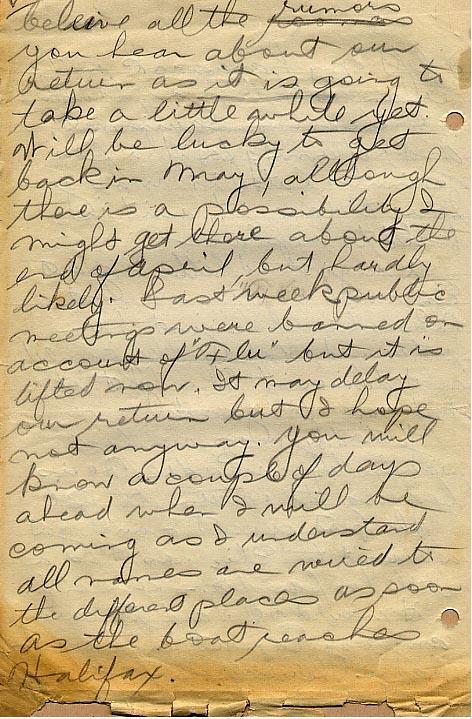 beleive all the rumors
you hear about our
return as it is going to
take a little while yet.
Will be lucky to get
back in May, although
there is a possibility I
might get there about the
end of april, but hardly
likely. Last week public
meetings were banned on
account of "Flu" but it is
lifted now. It may delay
our return but I hope
not anyway. You will
know a couple of days
ahead when I will be
coming as I understand
all names are wired to
the different places as soon
as the boat reaches
Halifax.